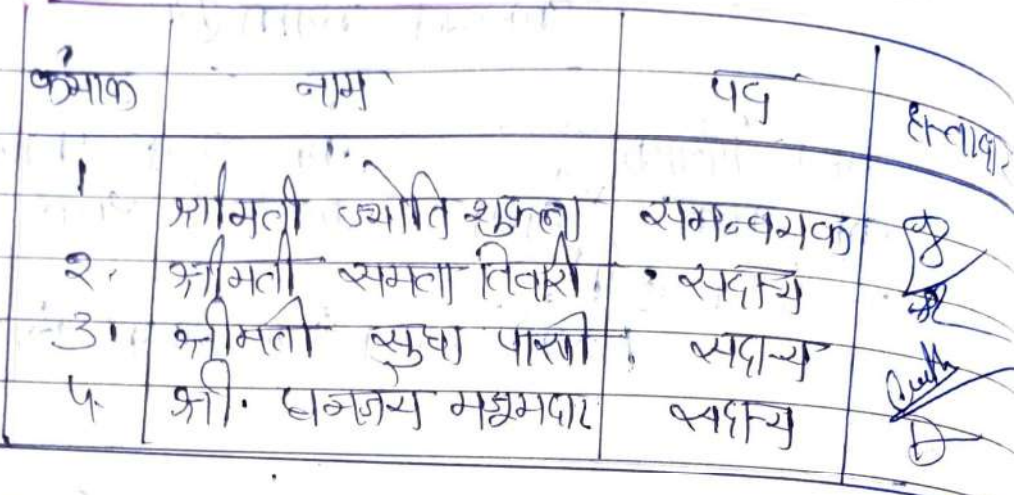 क्रमांक नाम पद हस्ताक्षर
1. श्रीमती ज्योति शुक्ला समन्वयक
२. श्रीमती समता तिवारी सदस्य
3. श्रीमती सुधा पासी सदस्य
४. श्री. धनंजय मजूमदार सदस्य